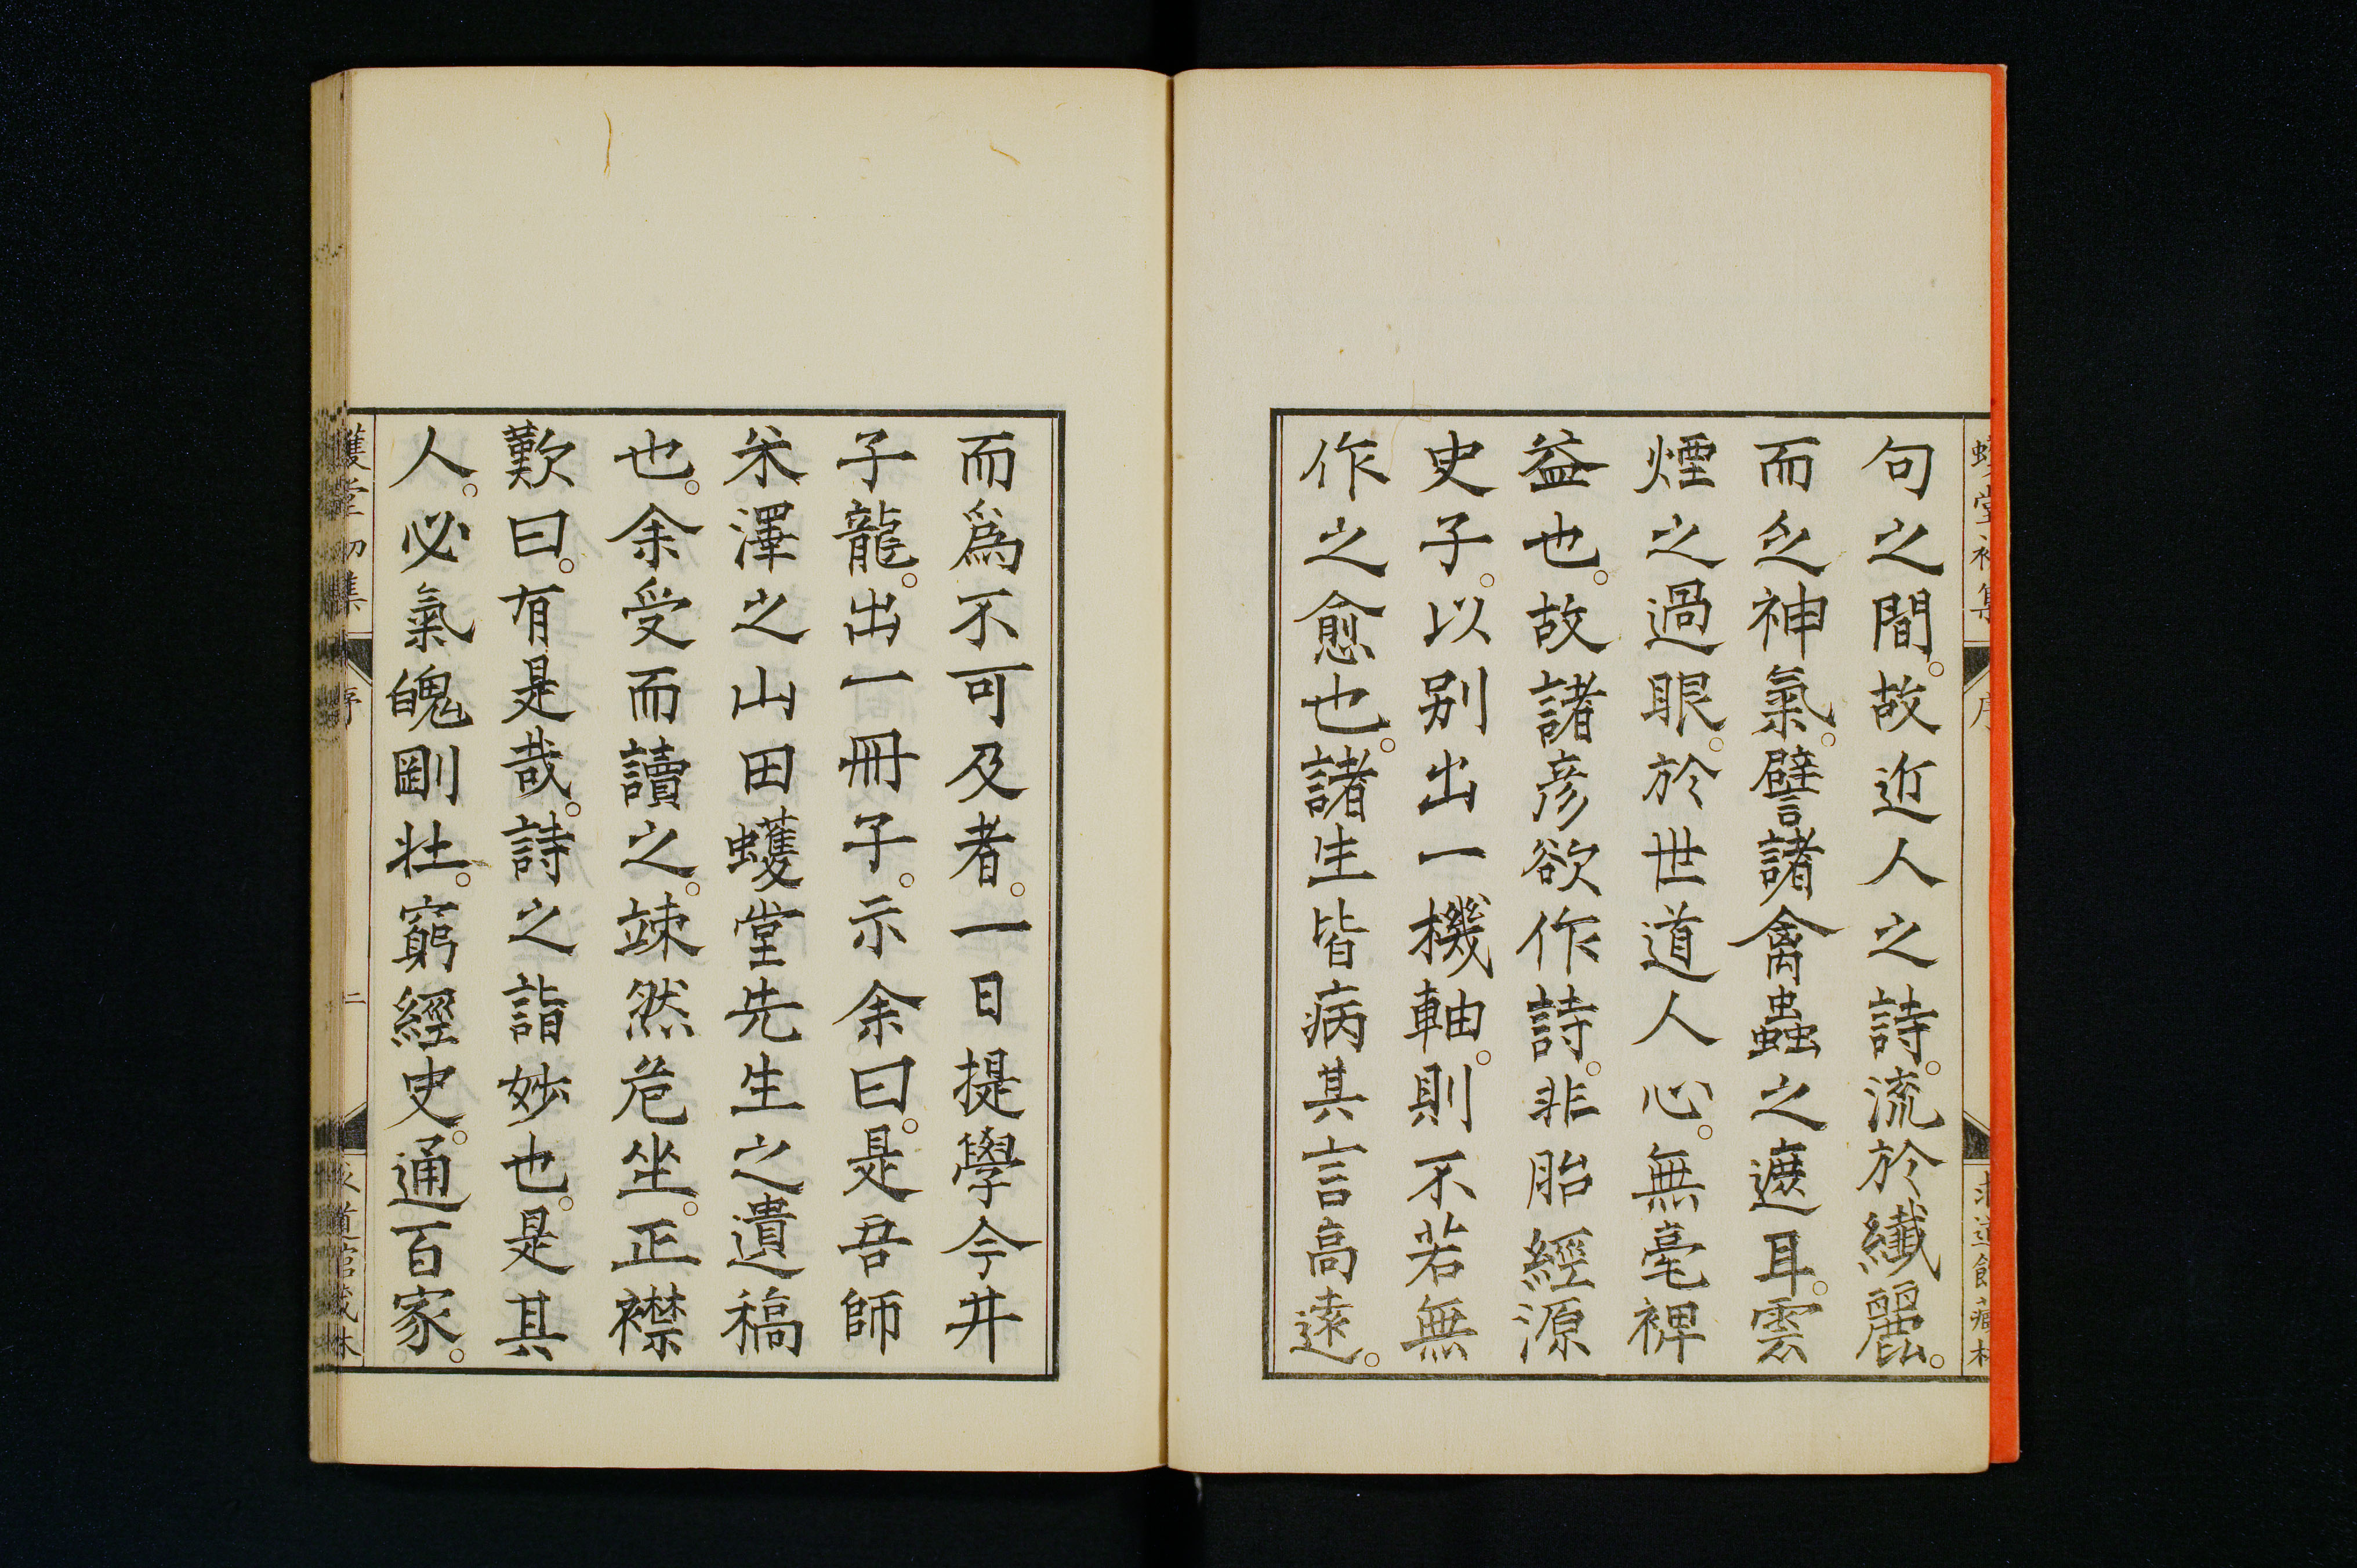 句之間。故近人之詩。流於纖麗。
而乏神氣。譬諸禽蟲之遮耳。雲
煙之過眼。於世道人心。無毫裨
益也。故諸彥欲作詩。非胎經源
史子。以別出一機軸。則不若無
作之愈也。諸生皆病其言高遠。
而爲不可及者。一日提學今井
子龍。出一冊子。示余曰。是吾師
米澤之山田蠖堂先生之遺稿
也。余受而讀之。竦然危坐。正襟
歎曰。有是哉。詩之詣妙也。是其
人。必氣魄剛壯。窮經史。通百家。
蠖堂初集
序
二